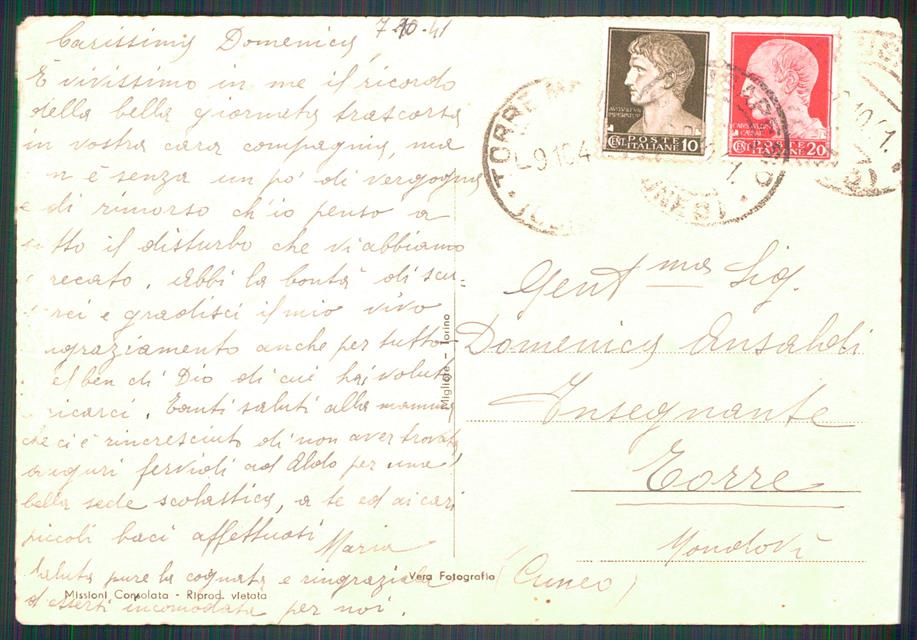 Carissima Domenica 7-10-41
È vivissimo in me il ricordo
della bella giornata trascorsa
in vostra cara compagnia, ma
n è senza un po' di vergogna
e di rimorso ch'io penso a
tutto il disturbo che vi abbiamo
recato. Abbi la bontà di scu-
sarci e gradisci il mio vivo
ringraziamento anche per tutto
el ben di Dio di cui hai voluto
caricarci. Tanti saluti alla mamma
che ci è rincresciuto di non aver trovata
auguri fervidi ad Aldo per una
bella sede scolastica, a te ed ai cari
piccoli baci affettuosi
Maria
Saluta pure la cognata e ringraziala
d'esserti incomodata per noi.
Missioni Consolata - Riprod. vietata
Vera Fotografia
Migliore - Torino
CENT. POSTE ITALIANE 10
CENT. POSTE ITALIANE 20
TORRE
9.10.4
Gent.ma Sig.
Domenica Ansaldi
Insegnante
Torre
Mondovì
(Cuneo)